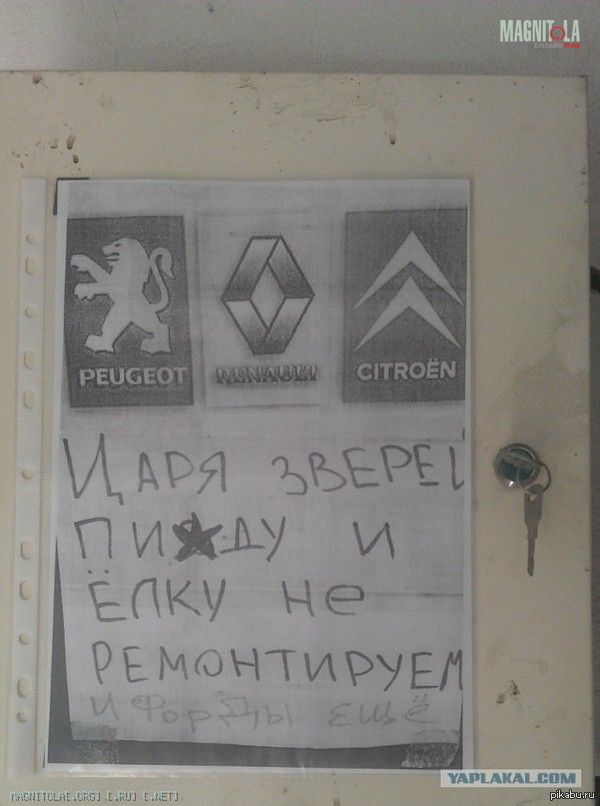 MAGNITOLA
PEUGEOT
RENAULT
CITROËN
ЦАРЯ ЗВЕРЕЙ
ПИ★ДУ И
ЁЛКУ Не
РЕМОНТИРУЕМ
И ФОРДЫ ЕЩЁ
YAPLAKAL.COM
MAGNITOLA[.ORG] [.RU] [.NET]
pikabu.ru